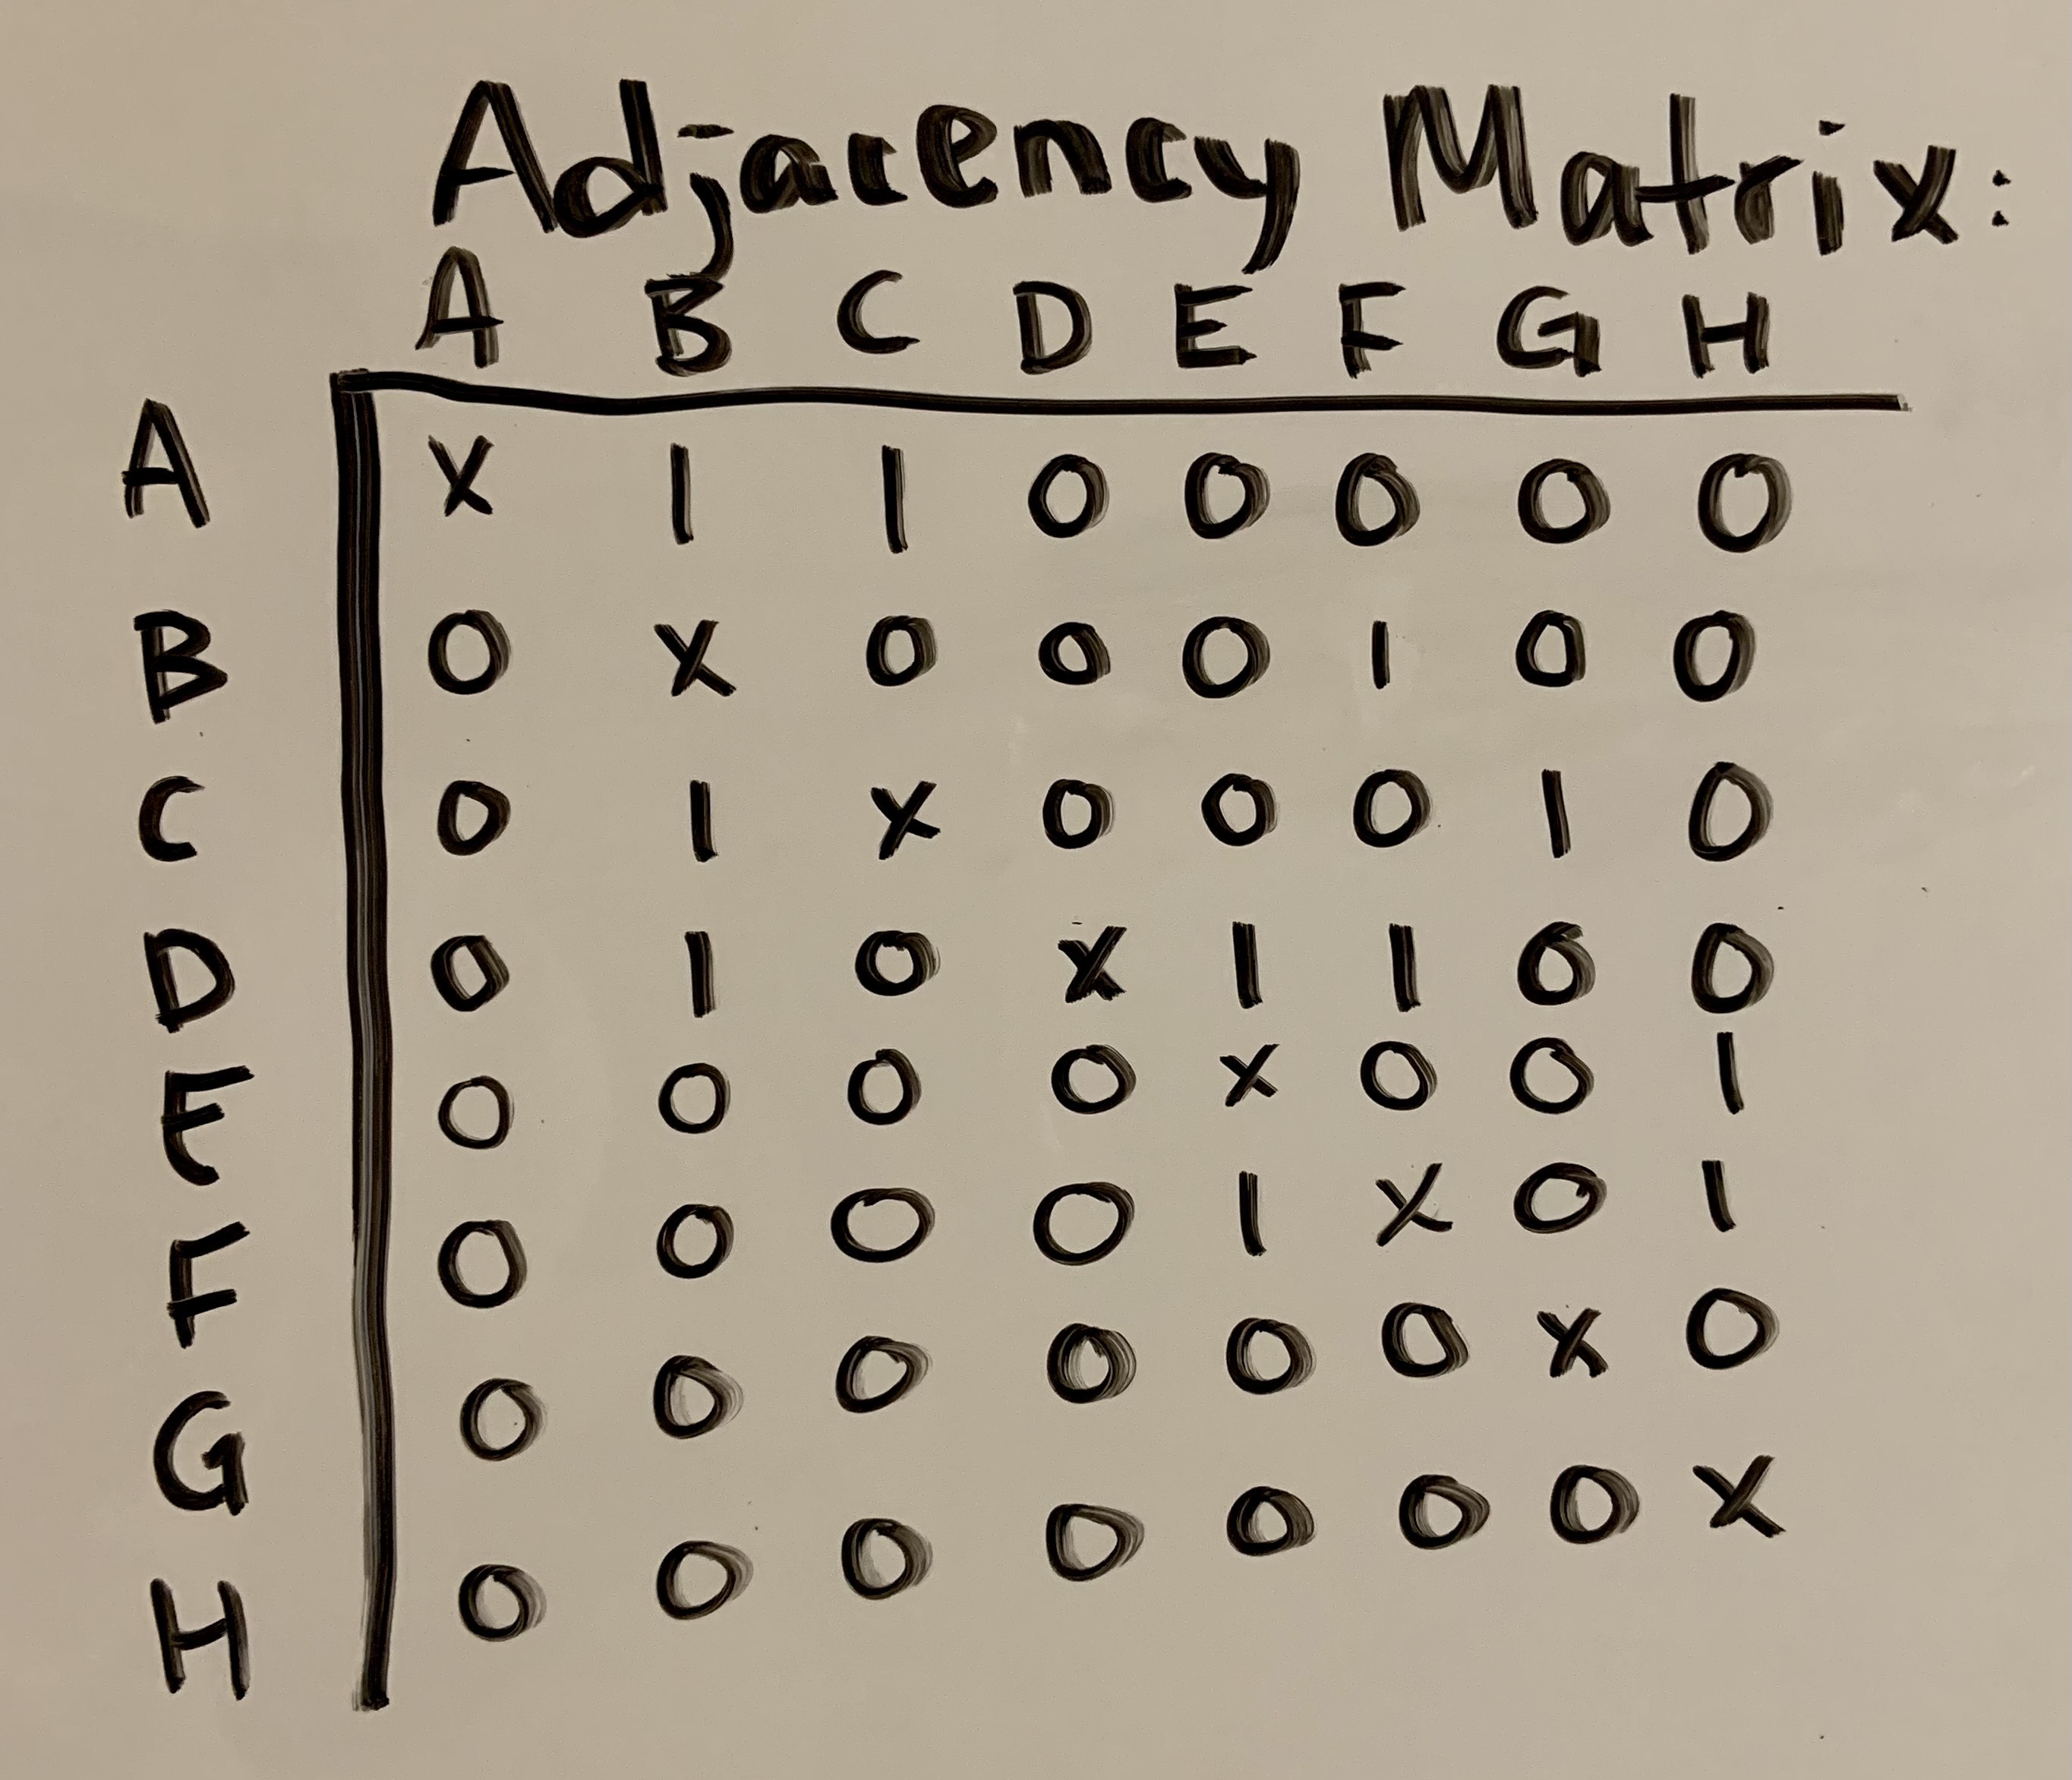 Adjacency Matrix:
A B C D E F G H
A X 1 1 0 0 0 0 0
B 0 X 0 0 0 1 0 0
C 0 1 X 0 0 0 1 0
D 0 1 0 X 1 1 0 0
E 0 0 0 0 X 0 0 1
F 0 0 0 0 1 X 0 1
G 0 0 0 0 0 0 X 0
H 0 0 0 0 0 0 0 X